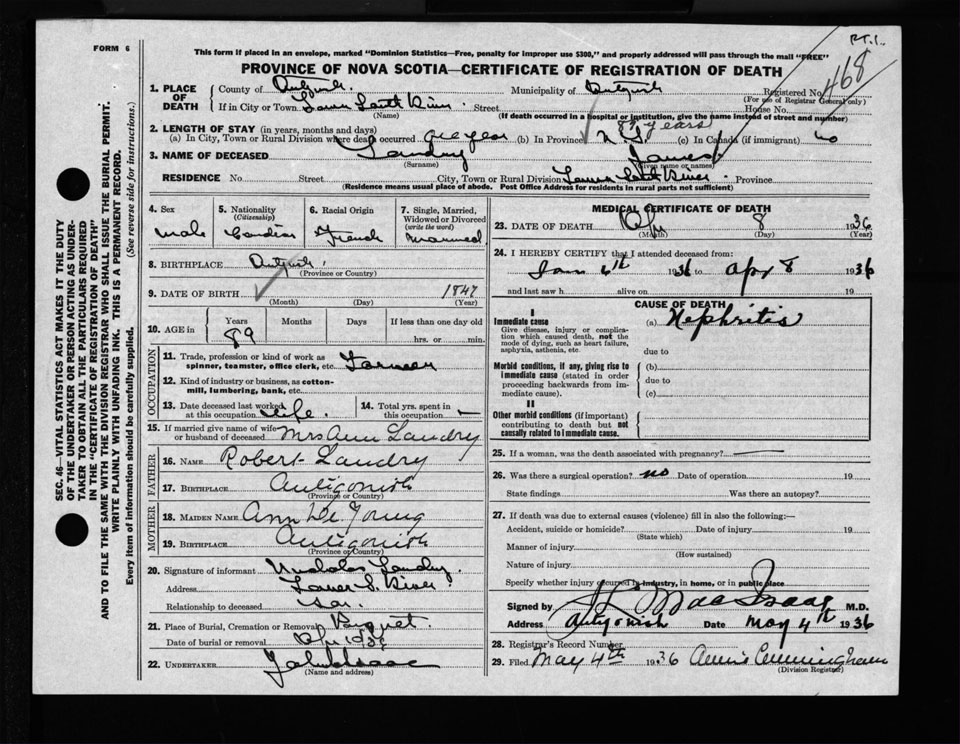 PT. 1.
FORM 6
468
This form if placed in an envelope, marked "Dominion Statistics—Free, penalty for improper use $300," and properly addressed will pass through the mail "FREE"
PROVINCE OF NOVA SCOTIA—CERTIFICATE OF REGISTRATION OF DEATH
1. PLACE OF DEATH
County of Antigonish. Municipality of Antigonish Registered No.
(For use of Registrar General only)
If in City or Town Lower South River. Street House No.
(Name) (If death occurred in a hospital or institution, give the name instead of street and number)
2. LENGTH OF STAY (in years, months and days) 89 years
(a) In City, Town or Rural Division where death occurred (b) In Province N. S. (c) In Canada (if immigrant) no
3. NAME OF DECEASED Landry James
(Surname) (Given name or names)
RESIDENCE No. Street City, Town or Rural Division Lower South River. Province
(Residence means usual place of abode. Post Office Address for residents in rural parts not sufficient)
4. Sex 5. Nationality 6. Racial Origin 7. Single, Married, Widowed or Divorced
(Citizenship) (write the word)
Male French Married
8. BIRTHPLACE Antigonish.
(Province or Country)
9. DATE OF BIRTH 1847
(Month) (Day) (Year)
10. AGE in Years Months Days If less than one day old
89 hrs. or min.
OCCUPATION
11. Trade, profession or kind of work as spinner, teamster, office clerk, etc. Farmer
12. Kind of industry or business, as cotton-mill, lumbering, bank, etc.
13. Date deceased last worked at this occupation life. 14. Total yrs. spent in this occupation —
15. If married give name of wife or husband of deceased Mrs Ann Landry
FATHER
16. NAME Robert Landry
17. BIRTHPLACE Antigonish
(Province or Country)
MOTHER
18. MAIDEN NAME Ann De Young
19. BIRTHPLACE Antigonish
(Province or Country)
20. Signature of informant Nicholas Landry
Address Lower S. River
Relationship to deceased son.
21. Place of Burial, Cremation or Removal
Date of burial or removal Apr 10
22. UNDERTAKER
(Name and address)
MEDICAL CERTIFICATE OF DEATH
23. DATE OF DEATH Apr 8 1936
(Month) (Day) (Year)
24. I HEREBY CERTIFY that I attended deceased from:
Jan 6th 1936 to Apr 8 1936
and last saw h alive on 19
CAUSE OF DEATH
I
Immediate cause (a) Nephritis
Give disease, injury or complication which caused death, not the mode of dying, such as heart failure, asphyxia, asthenia, etc.
due to
Morbid conditions, if any, giving rise to immediate cause (stated in order proceeding backwards from immediate cause).
(b)
due to
(c)
II
Other morbid conditions (if important) contributing to death but not causally related to immediate cause.
25. If a woman, was the death associated with pregnancy? —
26. Was there a surgical operation? no Date of operation 19
State findings Was there an autopsy?
27. If death was due to external causes (violence) fill in also the following:—
Accident, suicide or homicide? Date of injury 19
(State which)
Manner of injury
(How sustained)
Nature of injury
Specify whether injury occurred in industry, in home, or in public place
Signed by MacIsaac M.D.
Address Antigonish Date May 4th 1936
28. Registrar's Record Number
29. Filed May 4th 1936 Cunningham
(Division Registrar)
SEC. 46—VITAL STATISTICS ACT MAKES IT THE DUTY
OF THE UNDERTAKER OR PERSON ACTING AS UNDER-
TAKER TO OBTAIN ALL THE PARTICULARS REQUIRED
IN THE "CERTIFICATE OF REGISTRATION OF DEATH"
AND TO FILE THE SAME WITH THE DIVISION REGISTRAR WHO SHALL ISSUE THE BURIAL PERMIT.
WRITE PLAINLY WITH UNFADING INK. THIS IS A PERMANENT RECORD.
Every item of information should be carefully supplied. (See reverse side for instructions.)